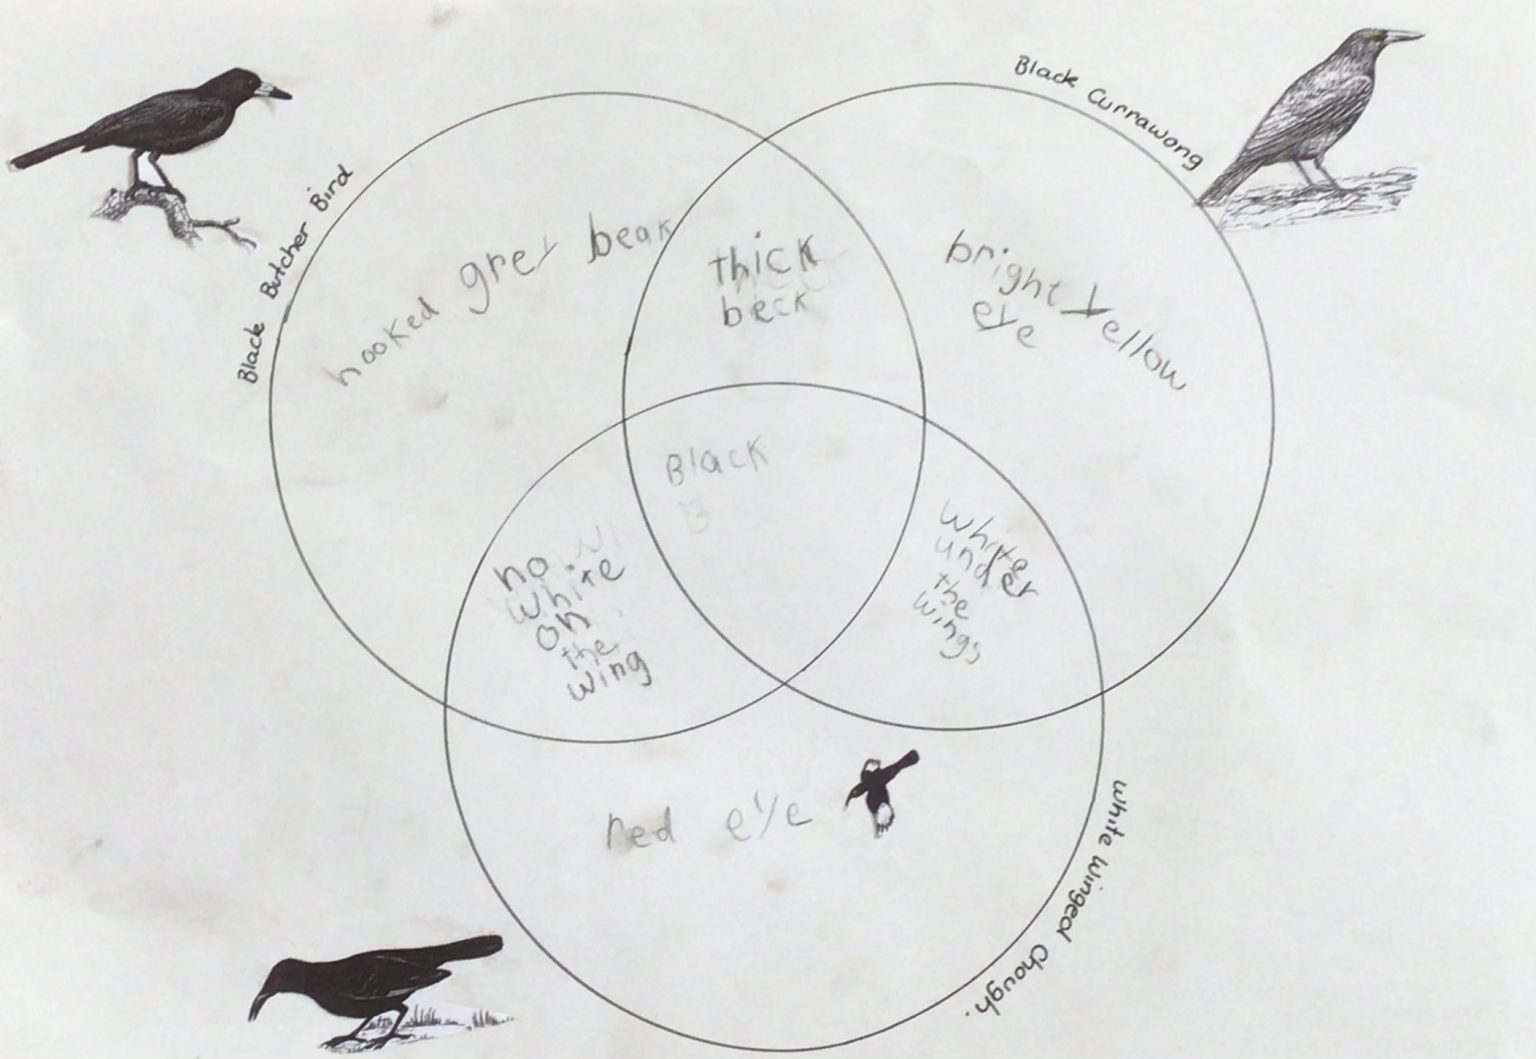 Black Butcher Bird
Black Currawong
hooked grey beak
thick
beck
bright yellow
eye
Black
no
white
on
the
wing
white
under
the
wings
red eye
White Winged Chough.